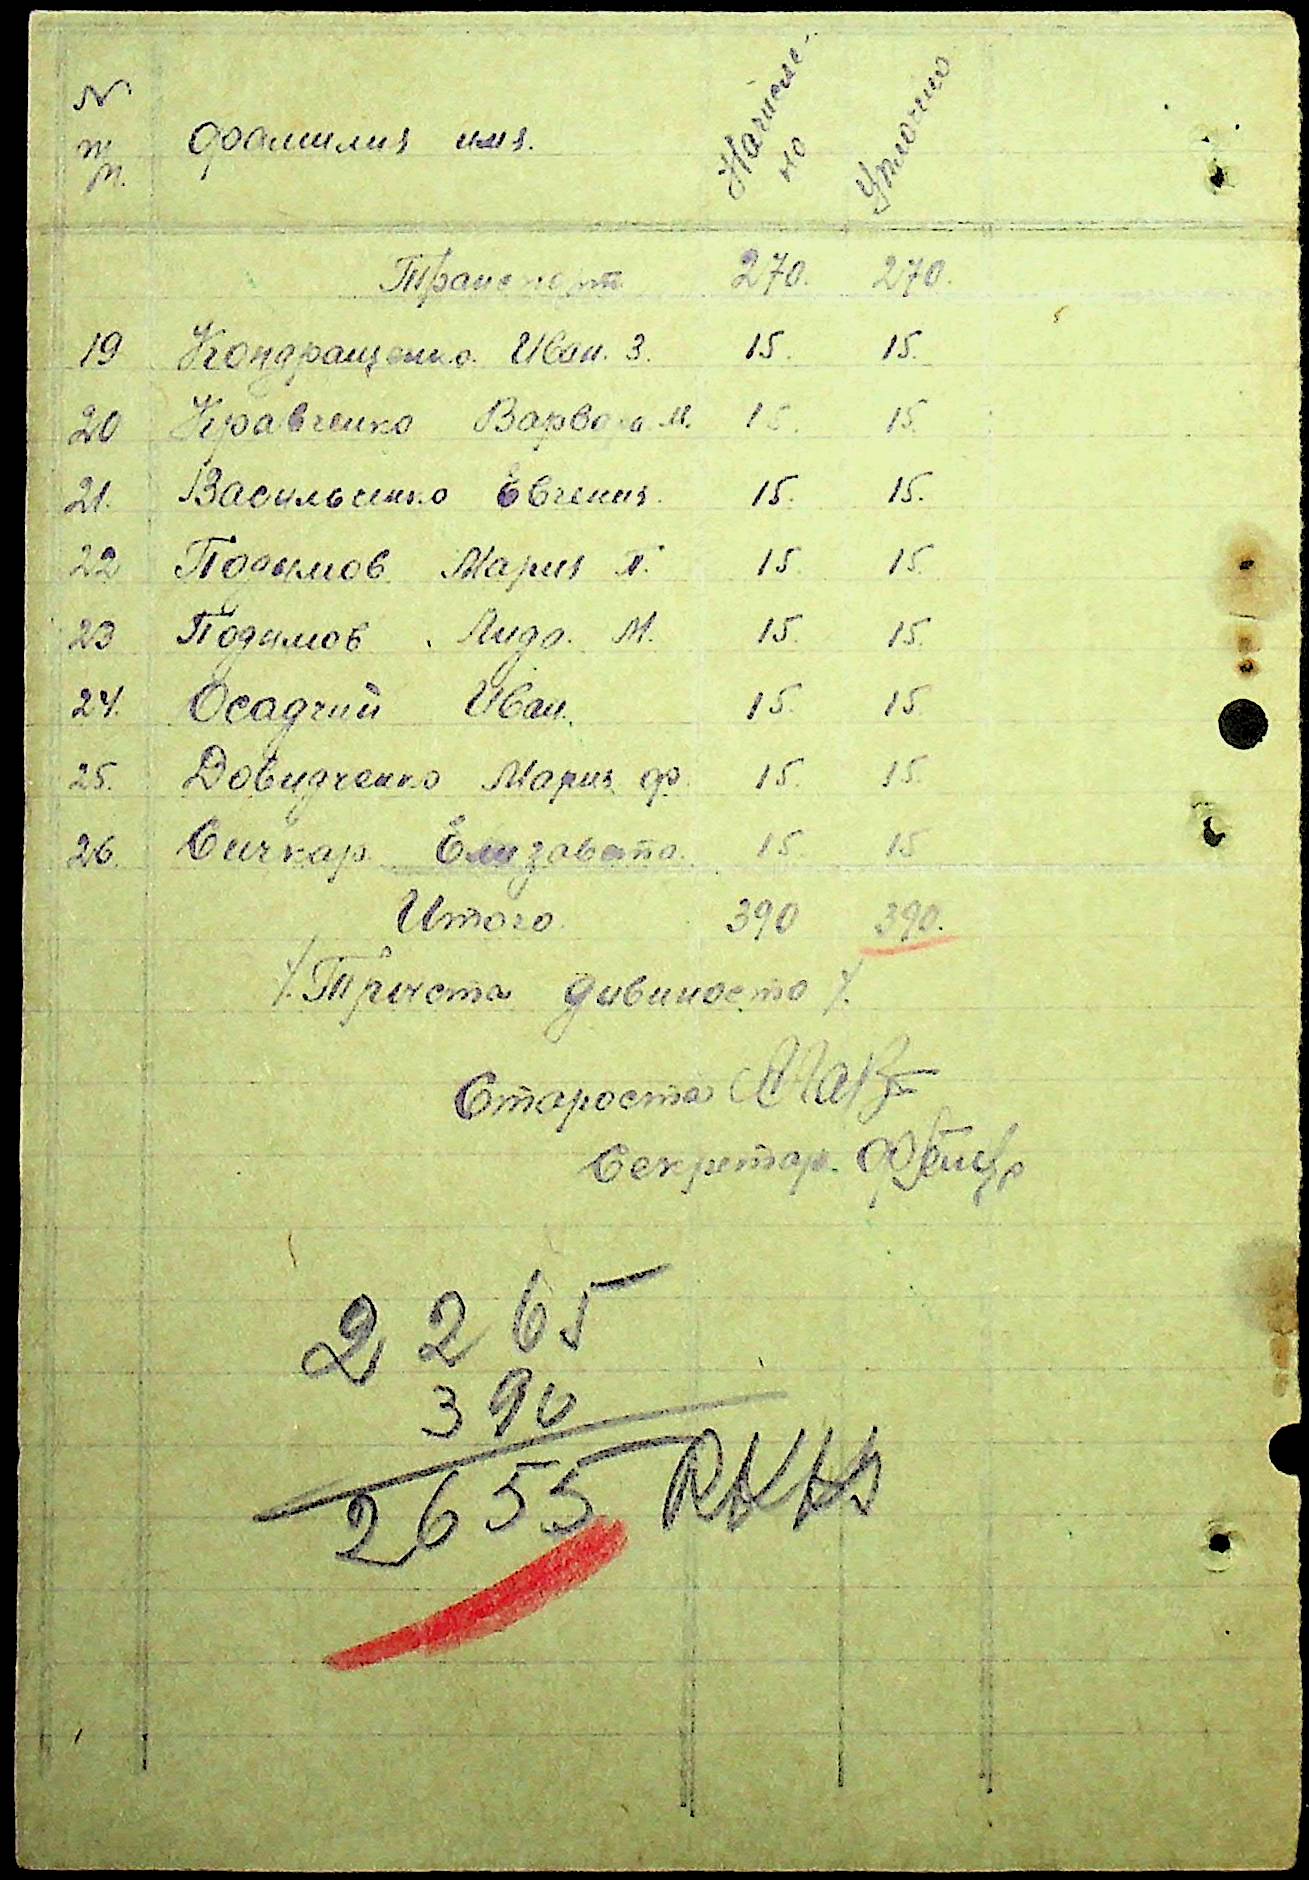 N п п. фамилия имя. Начисле-но Уплочено
Транспорт 270. 270.
19 Кондращенко Иван. З. 15. 15.
20 Кравченко Варвара М. 15. 15.
21. Васильченко Евгения. 15. 15.
22 Подымов Мария П. 15. 15.
23 Подымов Лида. М. 15. 15.
24. Осадчий Иван. 15. 15.
25. Довидченко Мария Ф. 15. 15.
26. Сичкар Елизавета. 15 15
Итого 390 390.
/. Триста дивиносто /.
Староста
Секретар.
2265
390
2655